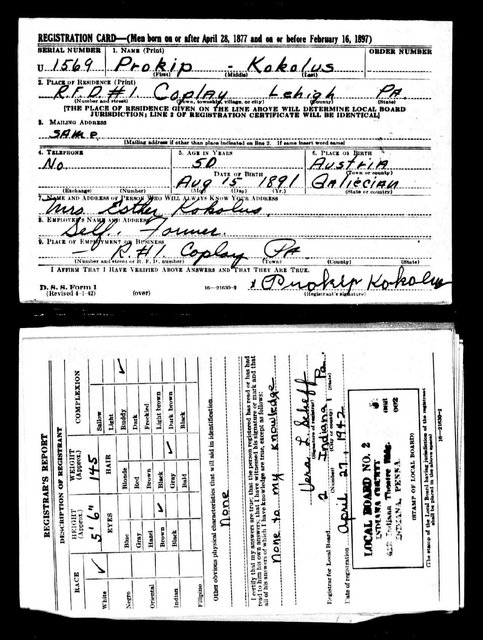 REGISTRATION CARD—(Men born on or after April 28, 1877 and on or before February 16, 1897)
SERIAL NUMBER 1. NAME (Print) ORDER NUMBER
U 1569 Prokip - Kokolus
(First) (Middle) (Last)
2. PLACE OF RESIDENCE (Print)
R.F.D. #1 Coplay Lehigh PA.
(Number and street) (Town, township, village, or city) (County) (State)
[THE PLACE OF RESIDENCE GIVEN ON THE LINE ABOVE WILL DETERMINE LOCAL BOARD
JURISDICTION; LINE 2 OF REGISTRATION CERTIFICATE WILL BE IDENTICAL]
3. MAILING ADDRESS
same
[Mailing address if other than place indicated on line 2. If same insert word same]
4. TELEPHONE 5. AGE IN YEARS 6. PLACE OF BIRTH
No. 50 Austria
DATE OF BIRTH (Town or county)
Aug 15 1891 Galiecian
(Exchange) (Number) (Mo.) (Day) (Yr.) (State or country)
7. NAME AND ADDRESS OF PERSON WHO WILL ALWAYS KNOW YOUR ADDRESS
Mrs. Esther Kokolus.
8. EMPLOYER'S NAME AND ADDRESS
Self. Farmer.
9. PLACE OF EMPLOYMENT OR BUSINESS
R.#1. Coplay Pa
(Number and street or R. F. D. number) (Town) (County) (State)
I AFFIRM THAT I HAVE VERIFIED ABOVE ANSWERS AND THAT THEY ARE TRUE.
D. S. S. Form 1
(Revised 4-1-42) (over) 16—21630-2 Prokip Kokolus
(Registrant's signature)
REGISTRAR'S REPORT
DESCRIPTION OF REGISTRANT
RACE HEIGHT (Approx.) WEIGHT (Approx.) COMPLEXION
5'6" 145
EYES HAIR
White ✓ Blue Blonde Sallow
Negro Gray Red Light
Oriental Hazel Brown Ruddy ✓
Indian Brown ✓ Black Dark
Filipino Black Gray ✓ Freckled
Bald Light brown
Dark brown
Black
Other obvious physical characteristics that will aid in identification
None
I certify that my answers are true; that the person registered has read or has had
read to him his own answers; that I have witnessed his signature or mark and that
all of his answers of which I have knowledge are true, except as follows:
none to my knowledge
Vera L. Scheff
(Signature of registrar)
Registrar for Local Board 2 Indiana Pa.
(Number) (City or county) (State)
Date of registration April 27, 1942
LOCAL BOARD NO. 2
INDIANA COUNTY
Indiana Theatre Bldg.
INDIANA, PENNA.
002
(STAMP OF LOCAL BOARD)
(The stamp of the Local Board having jurisdiction of the registrant
shall be placed in the above space)
16—21630-2